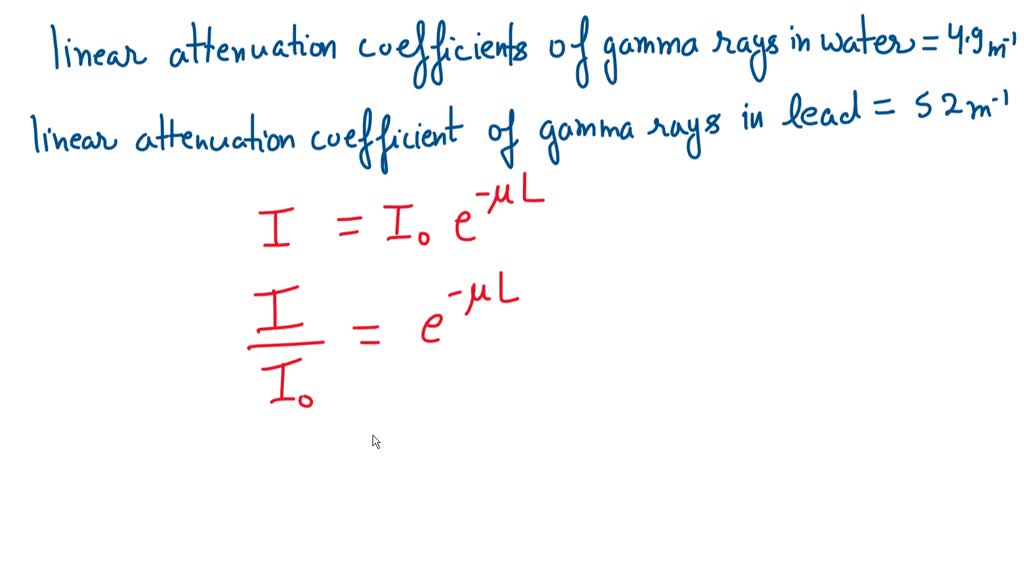 linear attenuation coefficients of gamma rays in water = 4.9 m⁻¹
linear attenuation coefficient of gamma rays in lead = 52 m⁻¹
I = I₀ e^-μL
I/I₀ = e^-μL